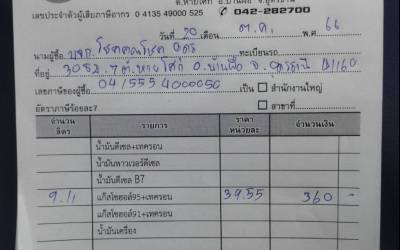 ต.หายโศก อ.บ้านผือ จ.อุดรธานี
เลขประจำตัวผู้เสียภาษีอากร 0 4135 49000 525 042-282700
วันที่ 20 เดือน ต.ค. พ.ศ. 66
นามผู้ซื้อ บจก. โชคคณโชค อุดร ทะเบียนรถ
ที่อยู่ 308 ม.7 ต.หายโศก อ.บ้านผือ จ.อุดรธานี 41160
เลขภาษีของผู้ซื้อ 041555 4000050 เป็น สำนักงานใหญ่
อัตราภาษีร้อยละ7 สาขาที่
จำนวน ลิตร รายการ ราคา หน่วยละ จำนวนเงิน
น้ำมันดีเซล+เทครอน
น้ำมันพาวเวอร์ดีเซล
น้ำมันดีเซล B7
9.11 แก๊สโซฮอล์95+เทครอน 39.55 360 -
แก๊สโซฮอล์91+เทครอน
น้ำมันเครื่อง